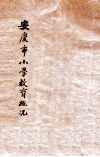 安慶市小學教育概況